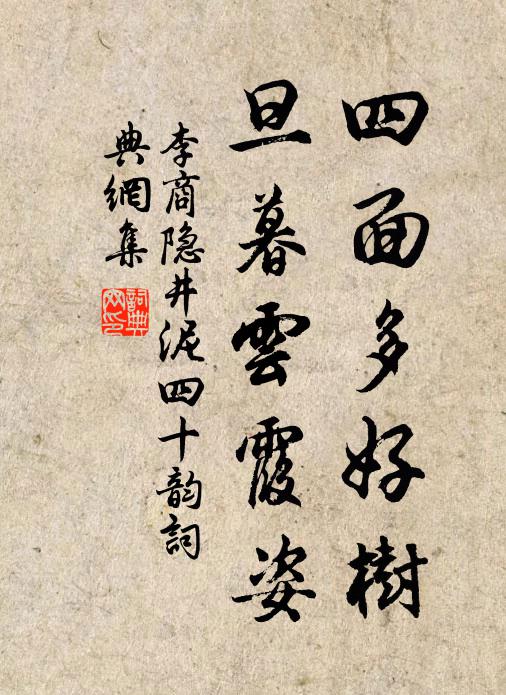 四面多好樹
旦暮雲霞姿
李商隐井泥四十韵詞
典網集
詞典网印